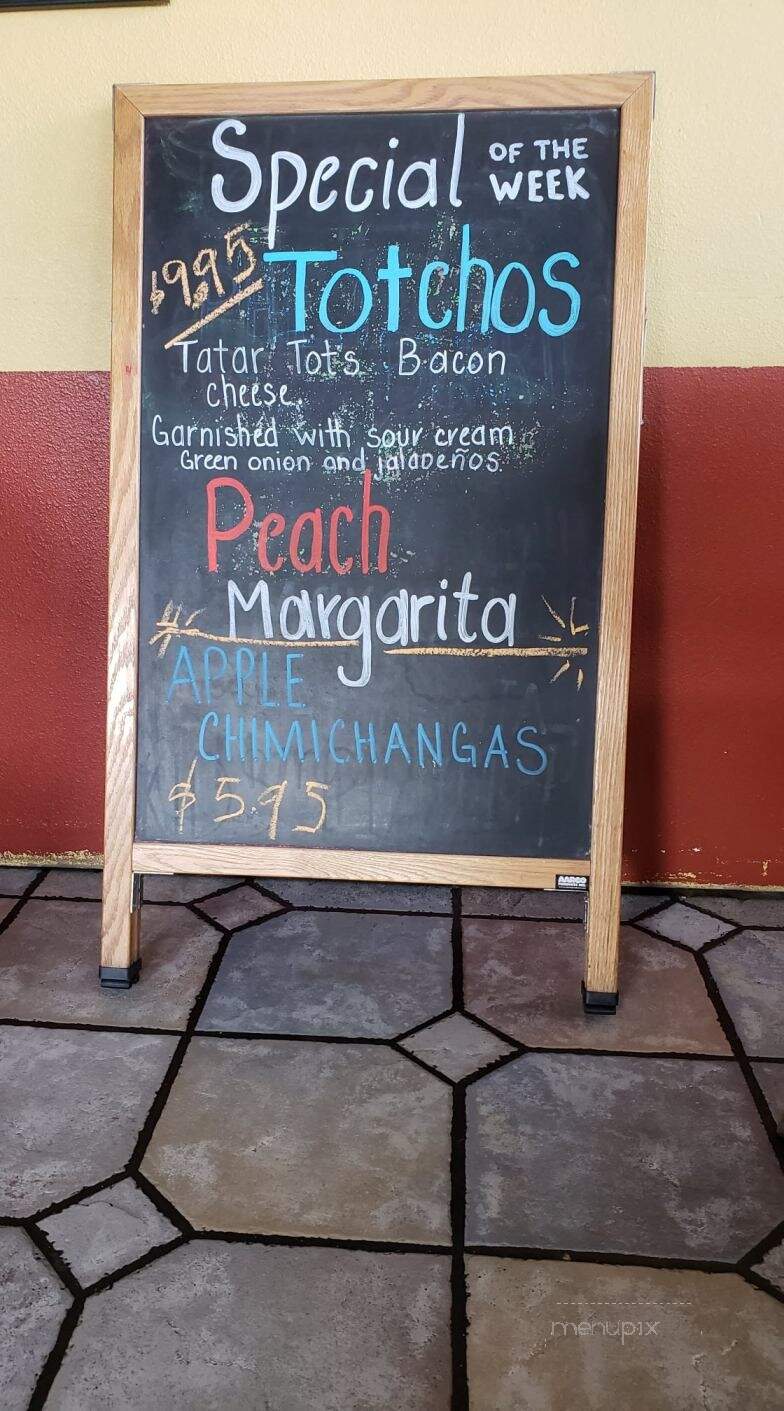 Special OF THE WEEK
$9.95 Totchos
Tatar Tots Bacon
cheese
Garnished with sour cream
Green onion and jalapeños
Peach
Margarita
APPLE
CHIMICHANGAS
$5.95
AARCO
menupix